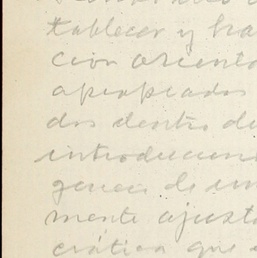 tablecer y ha
ción orienta
apropiados
dos dentro de
introduccion
mente ajust
crática que